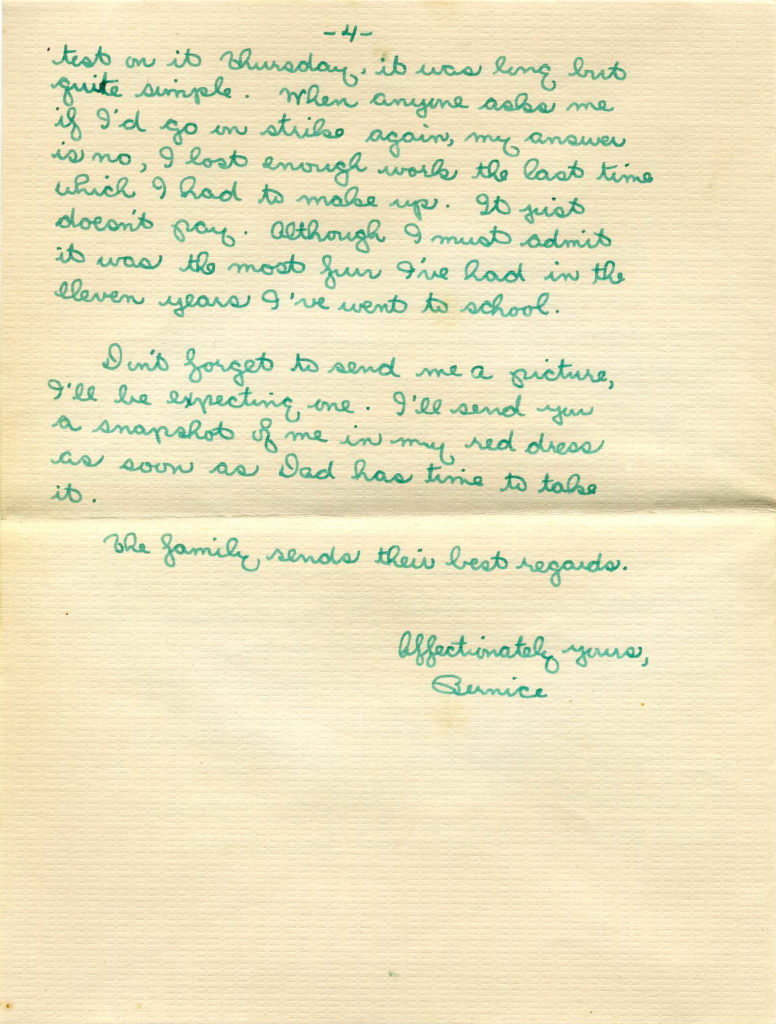 -4-
test on it Thursday, it was long but
quite simple. When anyone asks me
if I'd go on strike again, my answer
is no, I lost enough work the last time
which I had to make up. It just
doesn't pay. Although I must admit
it was the most fun I've had in the
eleven years I've went to school.
Don't forget to send me a picture,
I'll be expecting one. I'll send you
a snapshot of me in my red dress
as soon as Dad has time to take
it.
The family sends their best regards.
Affectionately yours,
Bernice